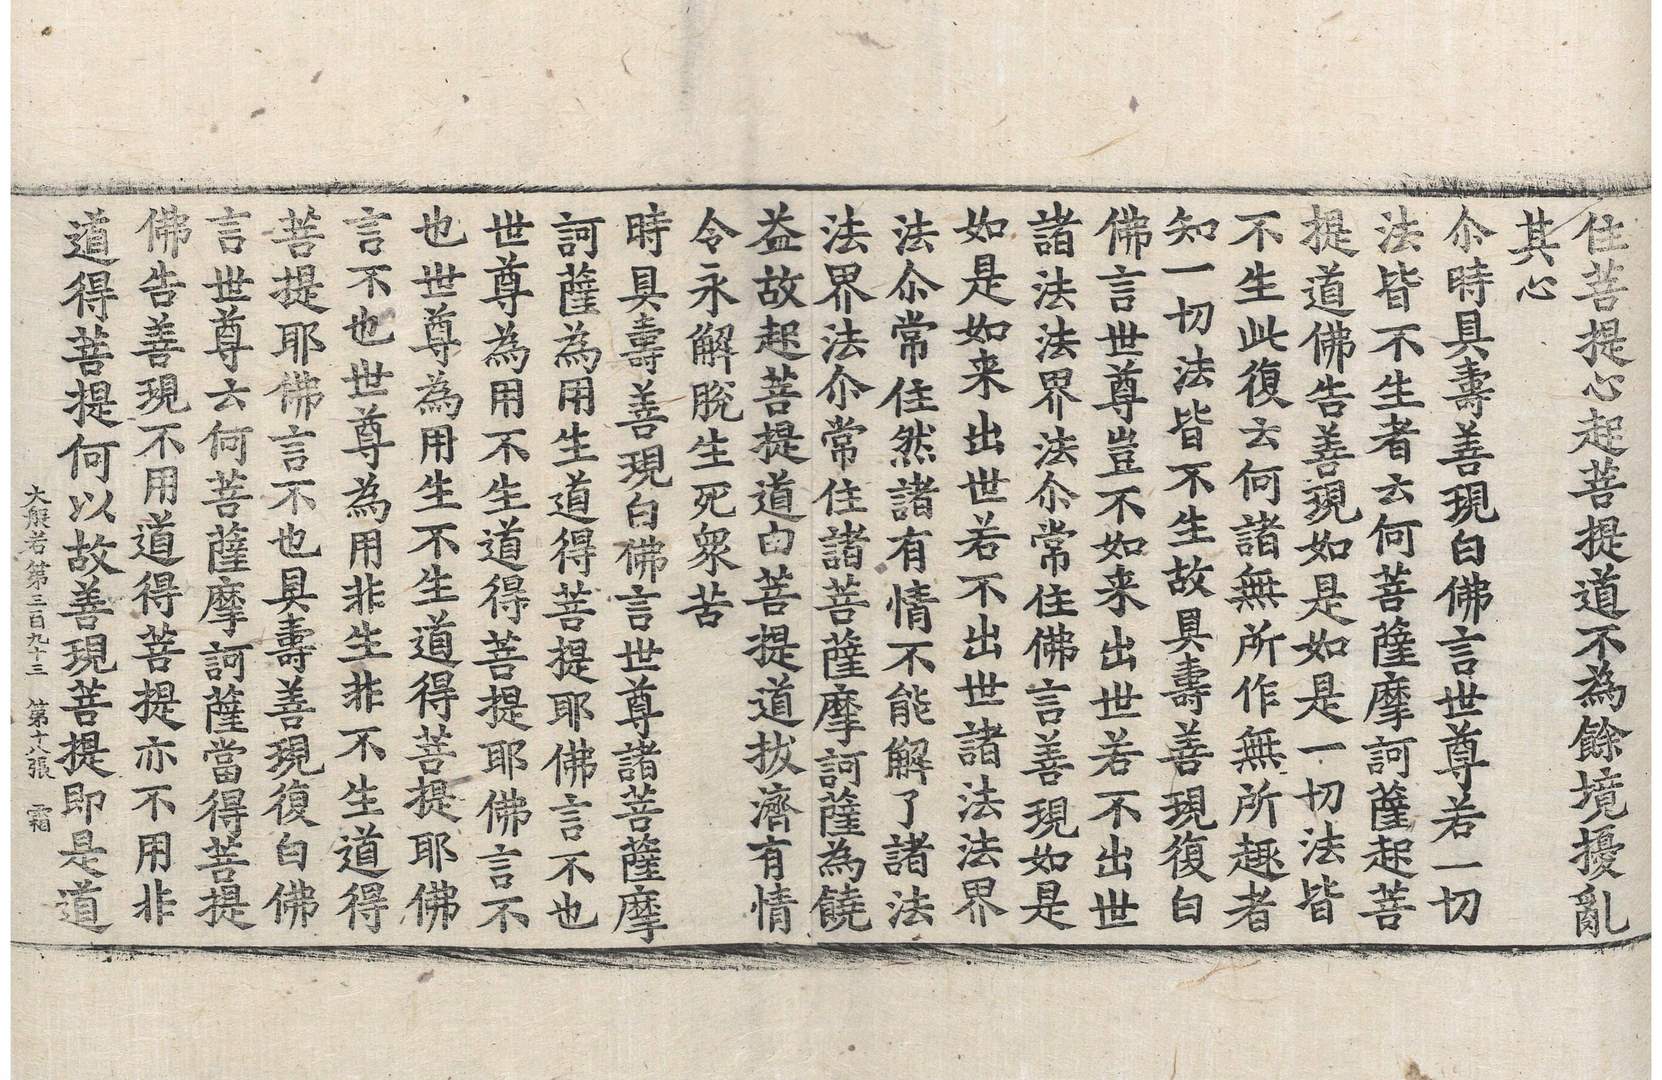 住菩提心起菩提道不為餘境擾亂
其心
尒時具壽善現白佛言世尊若一切
法皆不生者云何菩薩摩訶薩起菩
提道佛告善現如是如是一切法皆
不生此復云何諸無所作無所趣者
知一切法皆不生故具壽善現復白
佛言世尊豈不如来出世若不出世
諸法法界法尒常住佛言善現如是
如是如来出世若不出世諸法法界
法尒常住然諸有情不能解了諸法
法界法尒常住諸菩薩摩訶薩為饒
益故起菩提道由菩提道拔濟有情
令永解脫生死衆苦
時具壽善現白佛言世尊諸菩薩摩
訶薩為用生道得菩提耶佛言不也
世尊為用不生道得菩提耶佛言不
也世尊為用生不生道得菩提耶佛
言不也世尊為用非生非不生道得
菩提耶佛言不也具壽善現復白佛
言世尊云何菩薩摩訶薩當得菩提
佛告善現不用道得菩提亦不用非
道得菩提何以故善現菩提即是道
大般若第三百九十三 第十八張 霜